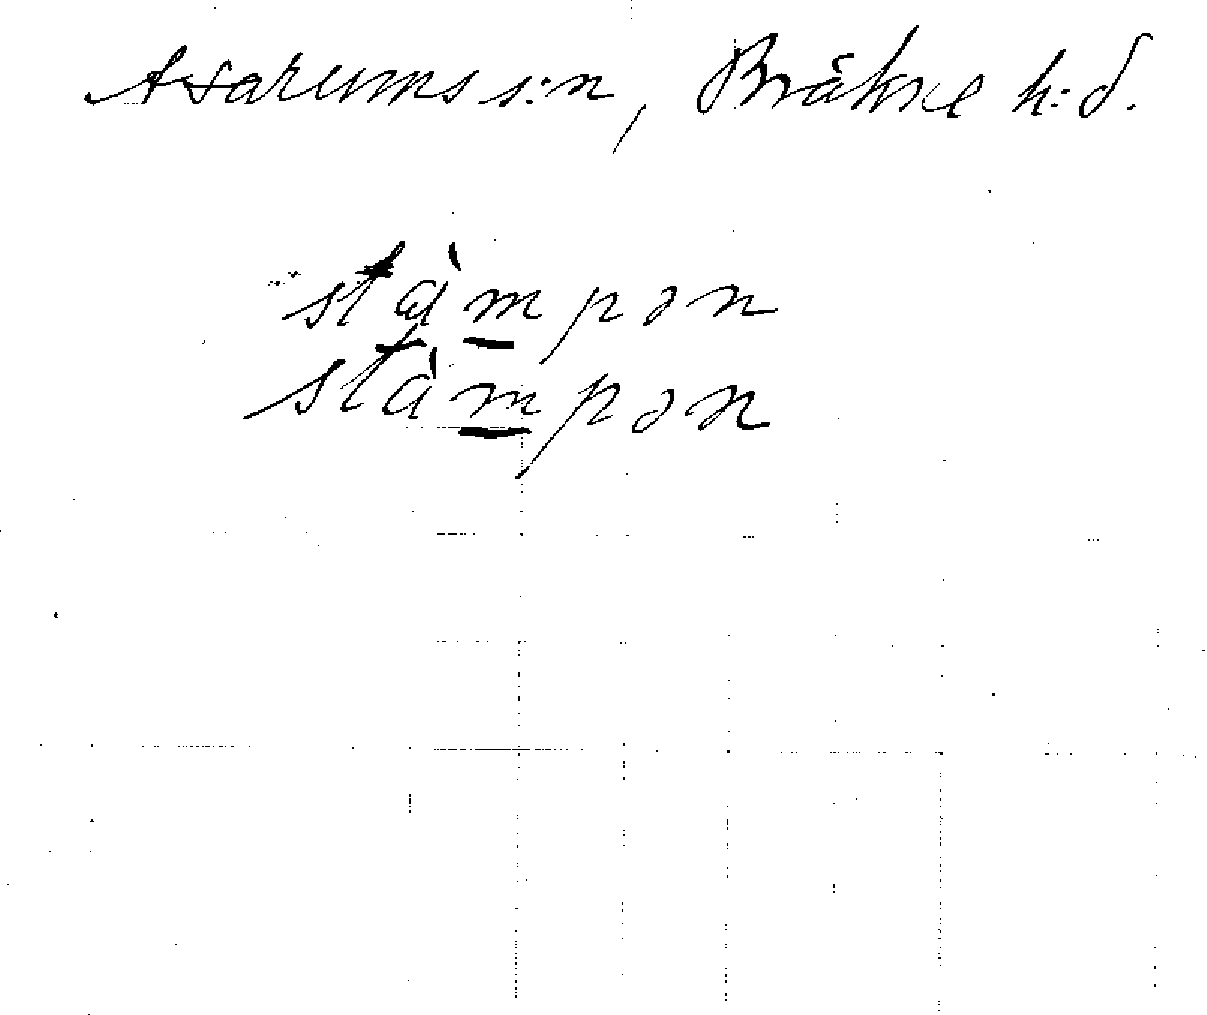 Asarums s:n, Bräkne h:d.
stàmpən
stàmpən